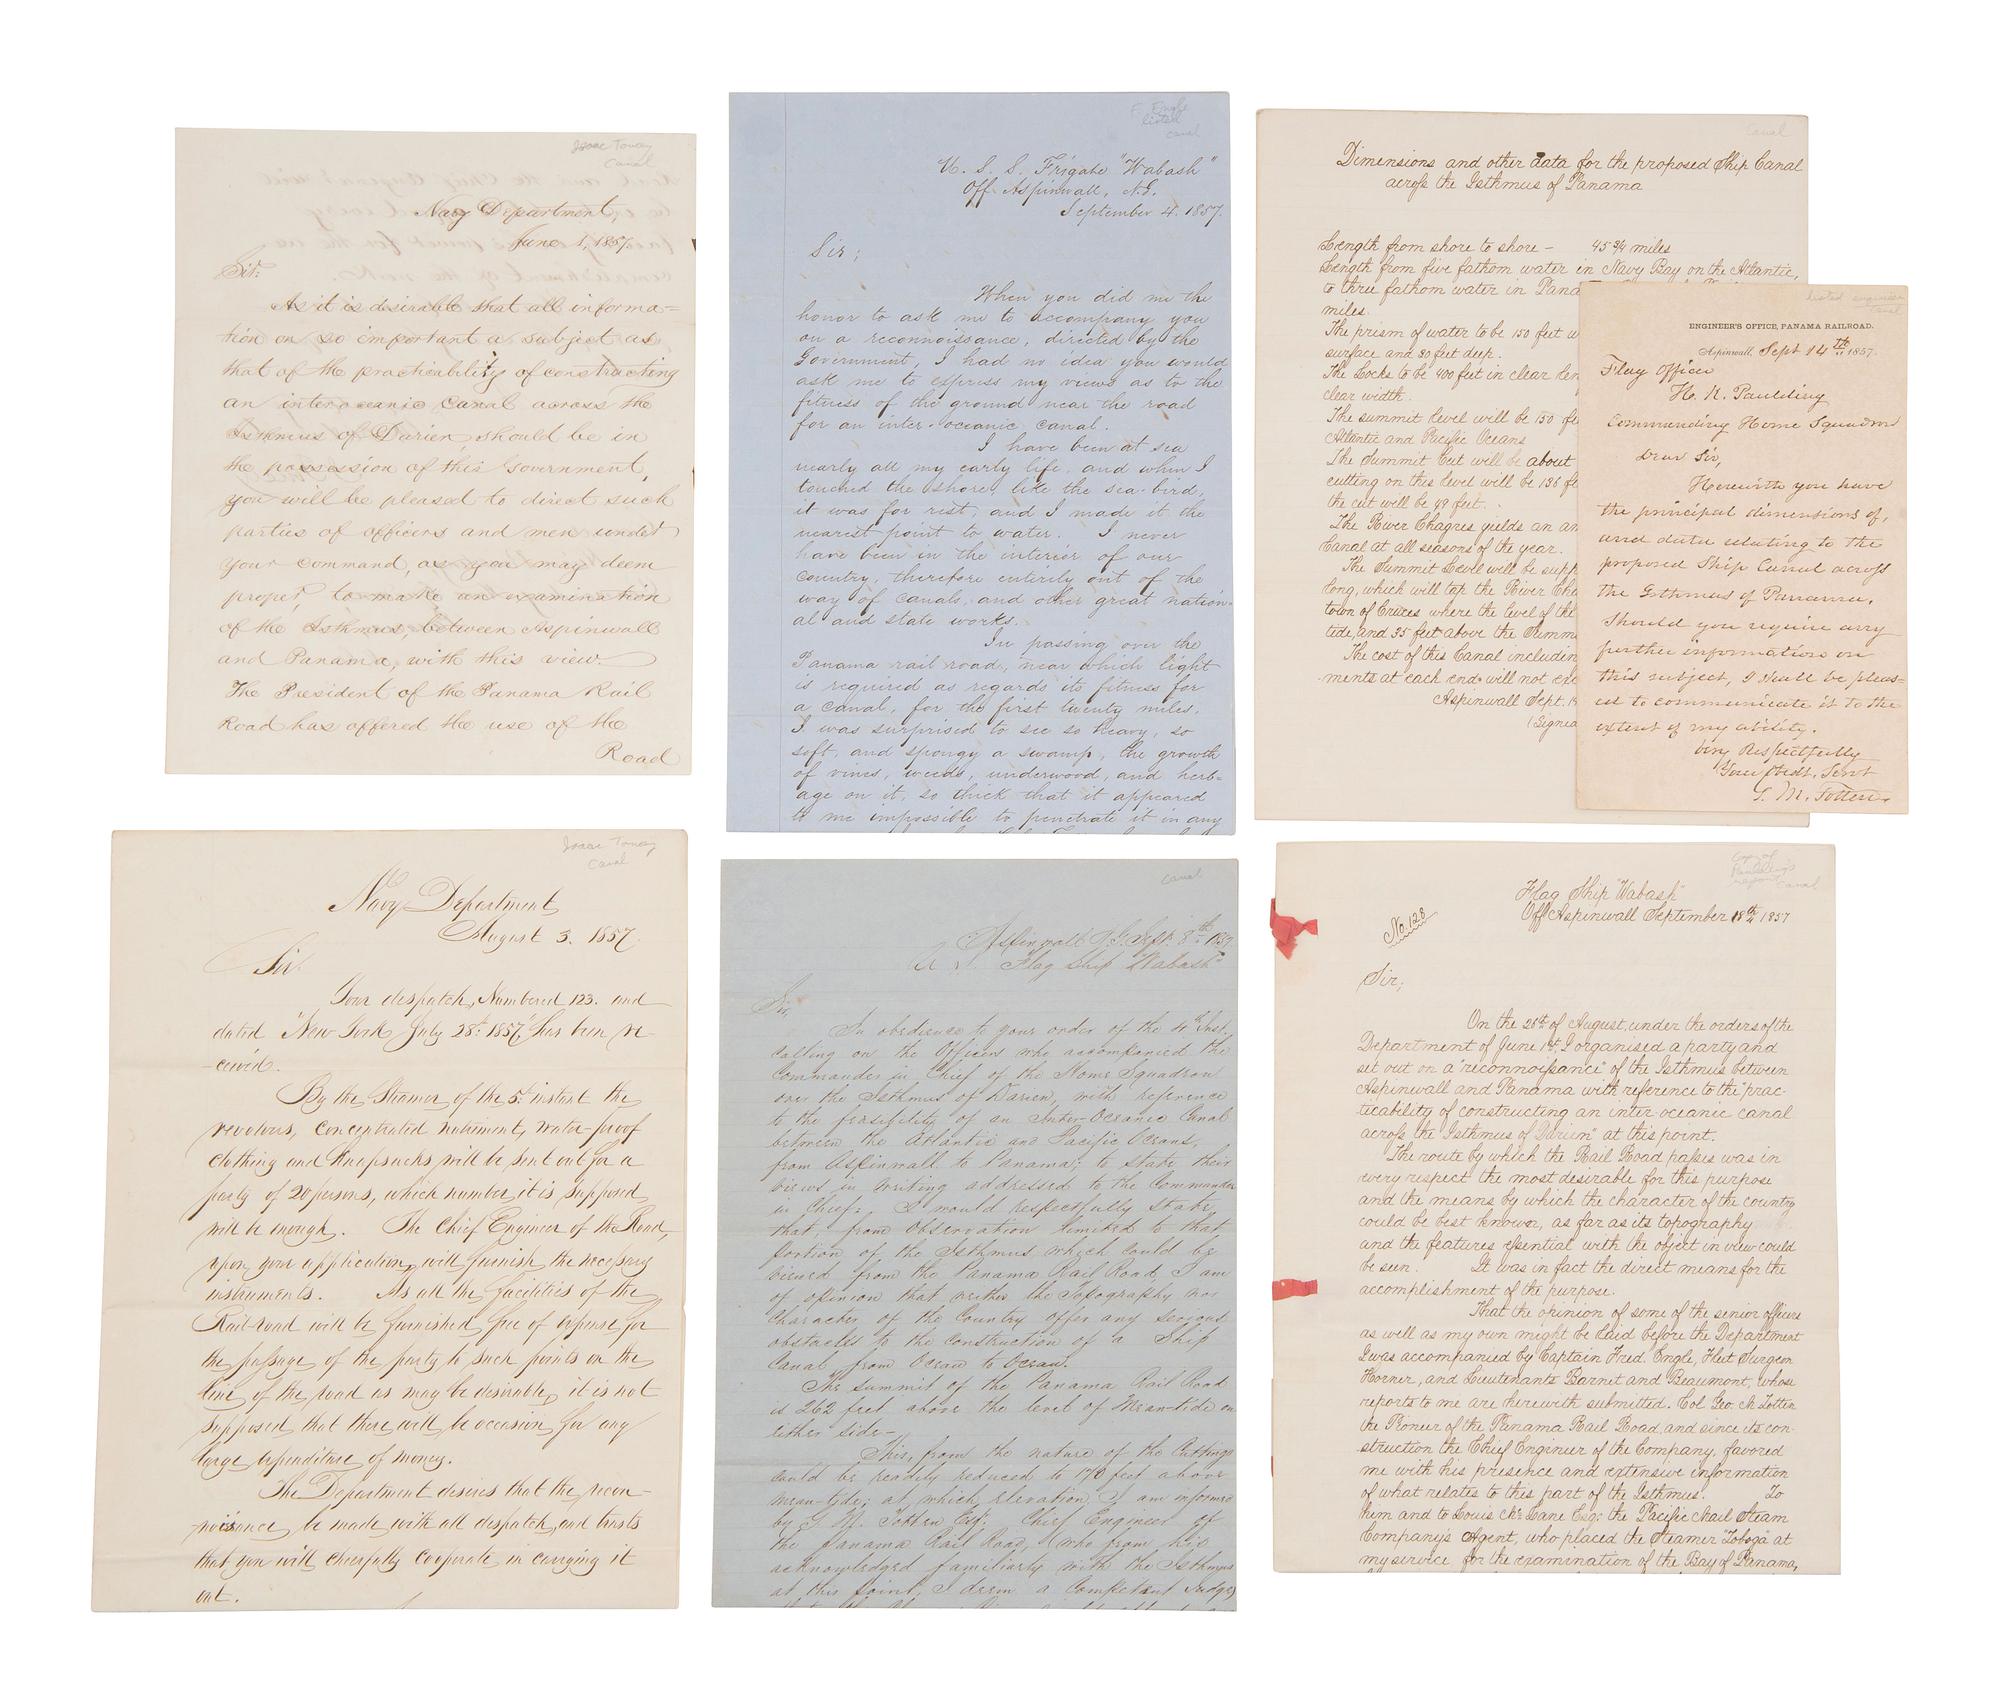 Isaac Toucey
Canal
Navy Department,
June 1, 1857.
Sir:
As it is desirable that all informa=
tion on so important a subject as
that of the practicability of constructing
an interoceanic Canal across the
Isthmus of Darien should be in
the possession of this Government,
you will be pleased to direct such
parties of officers and men under
your command, as you may deem
proper, to make an examination
of the Isthmus, between Aspinwall
and Panama, with this view.
The President of the Panama Rail
Road has offered the use of the
Road
F. Engle
listed
canal
U. S. S. Frigate "Wabash"
Off Aspinwall, N.G.
September 4. 1857.
Sir;
When you did me the
honor to ask me to accompany you
on a reconnoissance, directed by the
Government, I had no idea you would
ask me to express my views as to the
fitness of the ground near the road
for an inter-oceanic canal.
I have been at sea
nearly all my early life, and when I
touched the shore, like the sea-bird,
it was for rest, and I made it the
nearest point to water. I never
have been in the interior of our
country, therefore entirely out of the
way of canals, and other great nation-
al and state works.
In passing over the
Panama rail road, near which light
is required as regards its fitness for
a canal, for the first twenty miles,
I was surprised to see so heavy, so
soft, and spongy a swamp, the growth
of vines, weeds, underwood, and herb=
age on it, so thick that it appeared
to me impossible to penetrate it in any
Canal
Dimensions and other data for the proposed Ship Canal
across the Isthmus of Panama
Length from shore to shore - 45 3/4 miles
Length from five fathom water in Navy Bay on the Atlantic,
to three fathom water in Pana
miles.
The prism of water to be 150 feet w
surface and 30 feet deep.
The Locks to be 400 feet in clear len
clear width.
The summit level will be 150 fe
Atlantic and Pacific Oceans
The Summit Cut will be about
cutting on this level will be 136 fe
the cut will be 49 feet.
The River Chagres yields an am
Canal at all seasons of the year.
The Summit Level will be supp
long, which will tap the River Cha
town of Cruces where the level of the
tide, and 35 feet above the Summ
The cost of this Canal includin
ments at each end will not exc
Aspinwall Sept. 1
(Signed
listed engineer
Canal
ENGINEER'S OFFICE, PANAMA RAILROAD.
Aspinwall, Sept 14th 1857.
Flag Officer
H. N. Paulding
Commanding Home Squadron
Dear Sir,
Herewith you have
the principal dimensions of,
and data relating to the
proposed Ship Canal across
the Isthmus of Panama.
Should you require any
further information on
this subject, I shall be pleas=
ed to communicate it to the
extent of my ability.
Very Respectfully
Your Obedt. Servt
G. M. Totten
Isaac Toucey
Canal
Navy Department
August 3. 1857.
Sir.
Your despatch, Numbered 123. and
dated "New York July 28th 1857," has been re-
-ceived.
By the Steamer of the 5th instant the
revolvers, concentrated nutriment, water-proof
clothing and Knapsacks will be sent out for a
party of 20 persons, which number, it is supposed,
will be enough. The Chief Engineer of the Road,
upon your application, will furnish the necessary
instruments. As all the facilities of the
Rail-road will be furnished free of expense for
the passage of the party to such points on the
line of the road as may be desirable, it is not
supposed that there will be occasion for any
large expenditure of money.
The Department desires that the recon-
noisance be made with all despatch, and trusts
that you will cheerfully cooperate in carrying it
out.
Canal
Aspinwall N.G. Sept. 8th 1857
Flag Ship "Wabash"
Sir,
In obedience to your order of the 4th Inst.
calling on the Officers who accompanied the
Commander in Chief of the Home Squadron
over the Isthmus of Darien, with reference
to the feasibility of an Inter-Oceanic Canal
between the Atlantic and Pacific Oceans,
from Aspinwall to Panama; to state their
views in writing addressed to the Commander
in Chief: I would respectfully state,
that, from observation limited to that
portion of the Isthmus which could be
viewed from the Panama Rail Road, I am
of opinion that neither the Topography nor
Character of the Country offer any serious
obstacles to the construction of a Ship
Canal from Ocean to Ocean.
The summit of the Panama Rail Road
is 262 feet above the level of Mean-tide on
either side-
This, from the nature of the Cuttings
could be readily reduced to 170 feet above
mean-tide; at which elevation, I am informed
by G. M. Totten Esqr. Chief Engineer of
the Panama Rail Road, (who from his
acknowledged familiarity with the Isthmus
at this point, I deem a Competent Judge)
Copy of
Paulding's
report Canal
No. 128
Flag Ship "Wabash"
Off Aspinwall September 18th 1857
Sir;
On the 26th of August, under the orders of the
Department of June 1st, I organised a party and
set out on a "reconnoissance" of the Isthmus between
Aspinwall and Panama with reference to the "prac-
-ticability of constructing an inter oceanic canal
across the Isthmus of Darien" at this point.
The route by which the Rail Road passes was in
every respect the most desirable for this purpose
and the means by which the character of the country
could be best known, as far as its topography
and the features essential with the object in view could
be seen. It was in fact the direct means for the
accomplishment of the purpose.
That the opinion of some of the senior officers
as well as my own might be laid before the Department
I was accompanied by Captain Fred. Engle, Fleet Surgeon
Horner, and Lieutenants Barnet and Beaumont, whose
reports to me are herewith submitted. Col Geo. M Totten
the Pioneer of the Panama Rail Road, and since its con-
struction the Chief Engineer of the Company, favored
me with his presence and extensive information
of what relates to this part of the Isthmus. To
him and to Louis McLane Esq: the Pacific Mail Steam
Company's Agent, who placed the Steamer "Toboga" at
my service for the examination of the Bay of Panama,